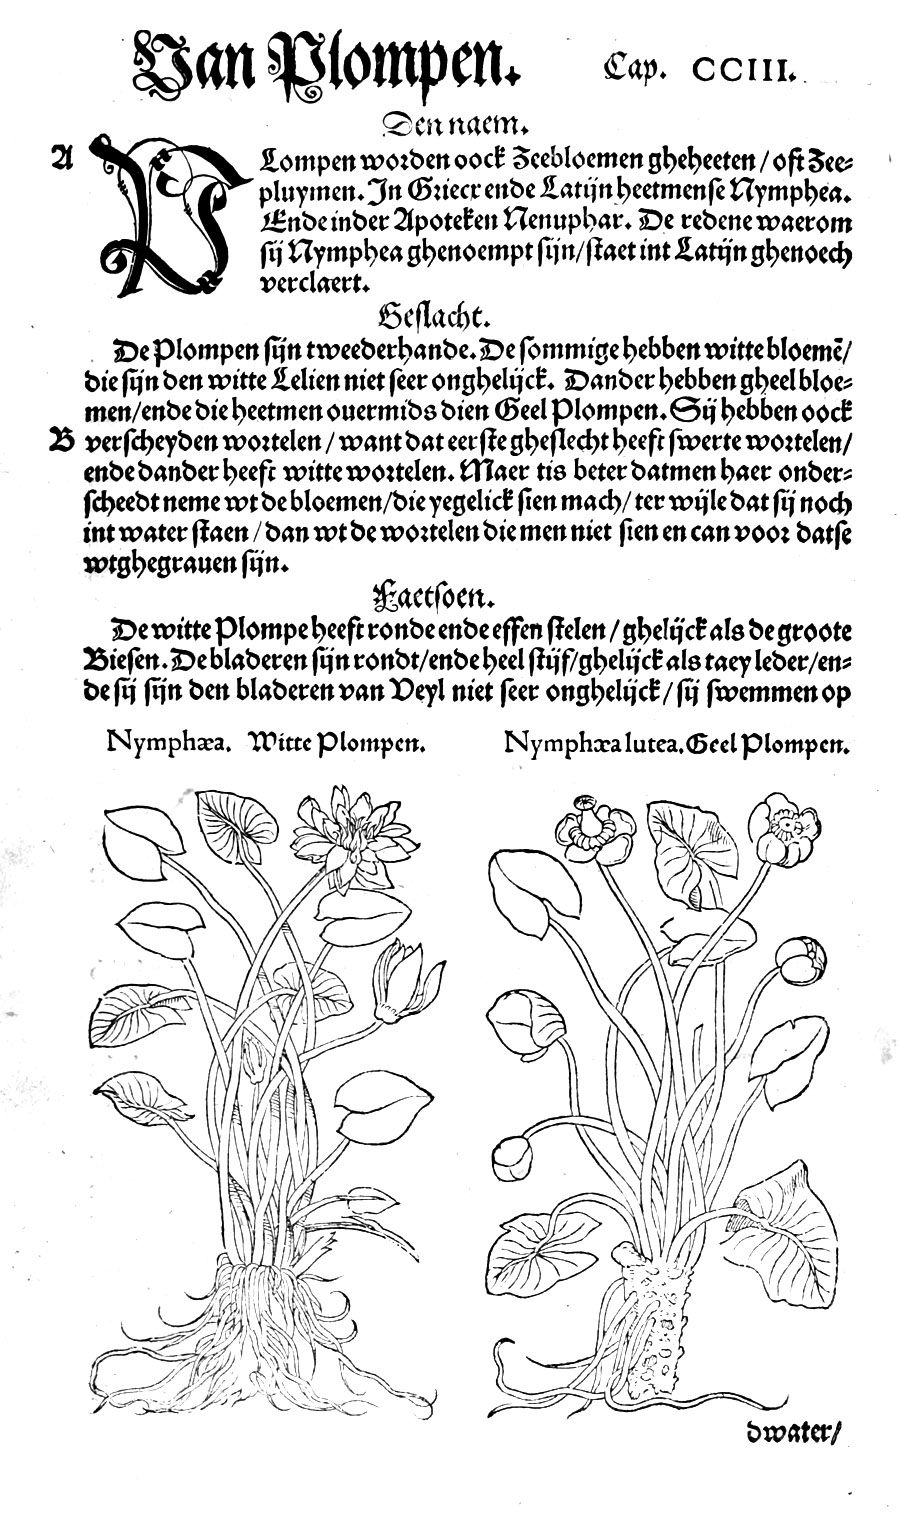 Van Plompen. Cap. CCIII.
Den naem.
A PLompen worden oock Zeebloemen gheheeten / oft Zee⸗
pluymen. In Griecx ende Latijn heetmense Nymphea.
Ende inder Apoteken Nenuphar. De redene waerom
sij Nymphea ghenoempt sijn/staet int Latijn ghenoech
verclaert.
Geslacht.
De Plompen sijn tweederhande. De sommige hebben witte bloemē/
die sijn den witte Lelien niet seer onghelijck. Dander hebben gheel bloe⸗
men/ende die heetmen ouermids dien Geel Plompen. Sij hebben oock
B verscheyden wortelen / want dat eerste gheslecht heeft swerte wortelen/
ende dander heeft witte wortelen. Maer tis beter datmen haer onder⸗
scheedt neme wt de bloemen/die yegelick sien mach/ ter wijle dat sij noch
int water staen / dan wt de wortelen die men niet sien en can voor datse
wtghegrauen sijn.
Faetsoen.
De witte Plompe heeft ronde ende effen stelen / ghelijck als de groote
Biesen. De bladeren sijn rondt/ende heel stijf/ghelijck als taey leder/en⸗
de sij sijn den bladeren van Veyl niet seer onghelijck/ sij swemmen op
Nymphæa. Witte Plompen. Nymphæa lutea. Geel Plompen.
dwater/